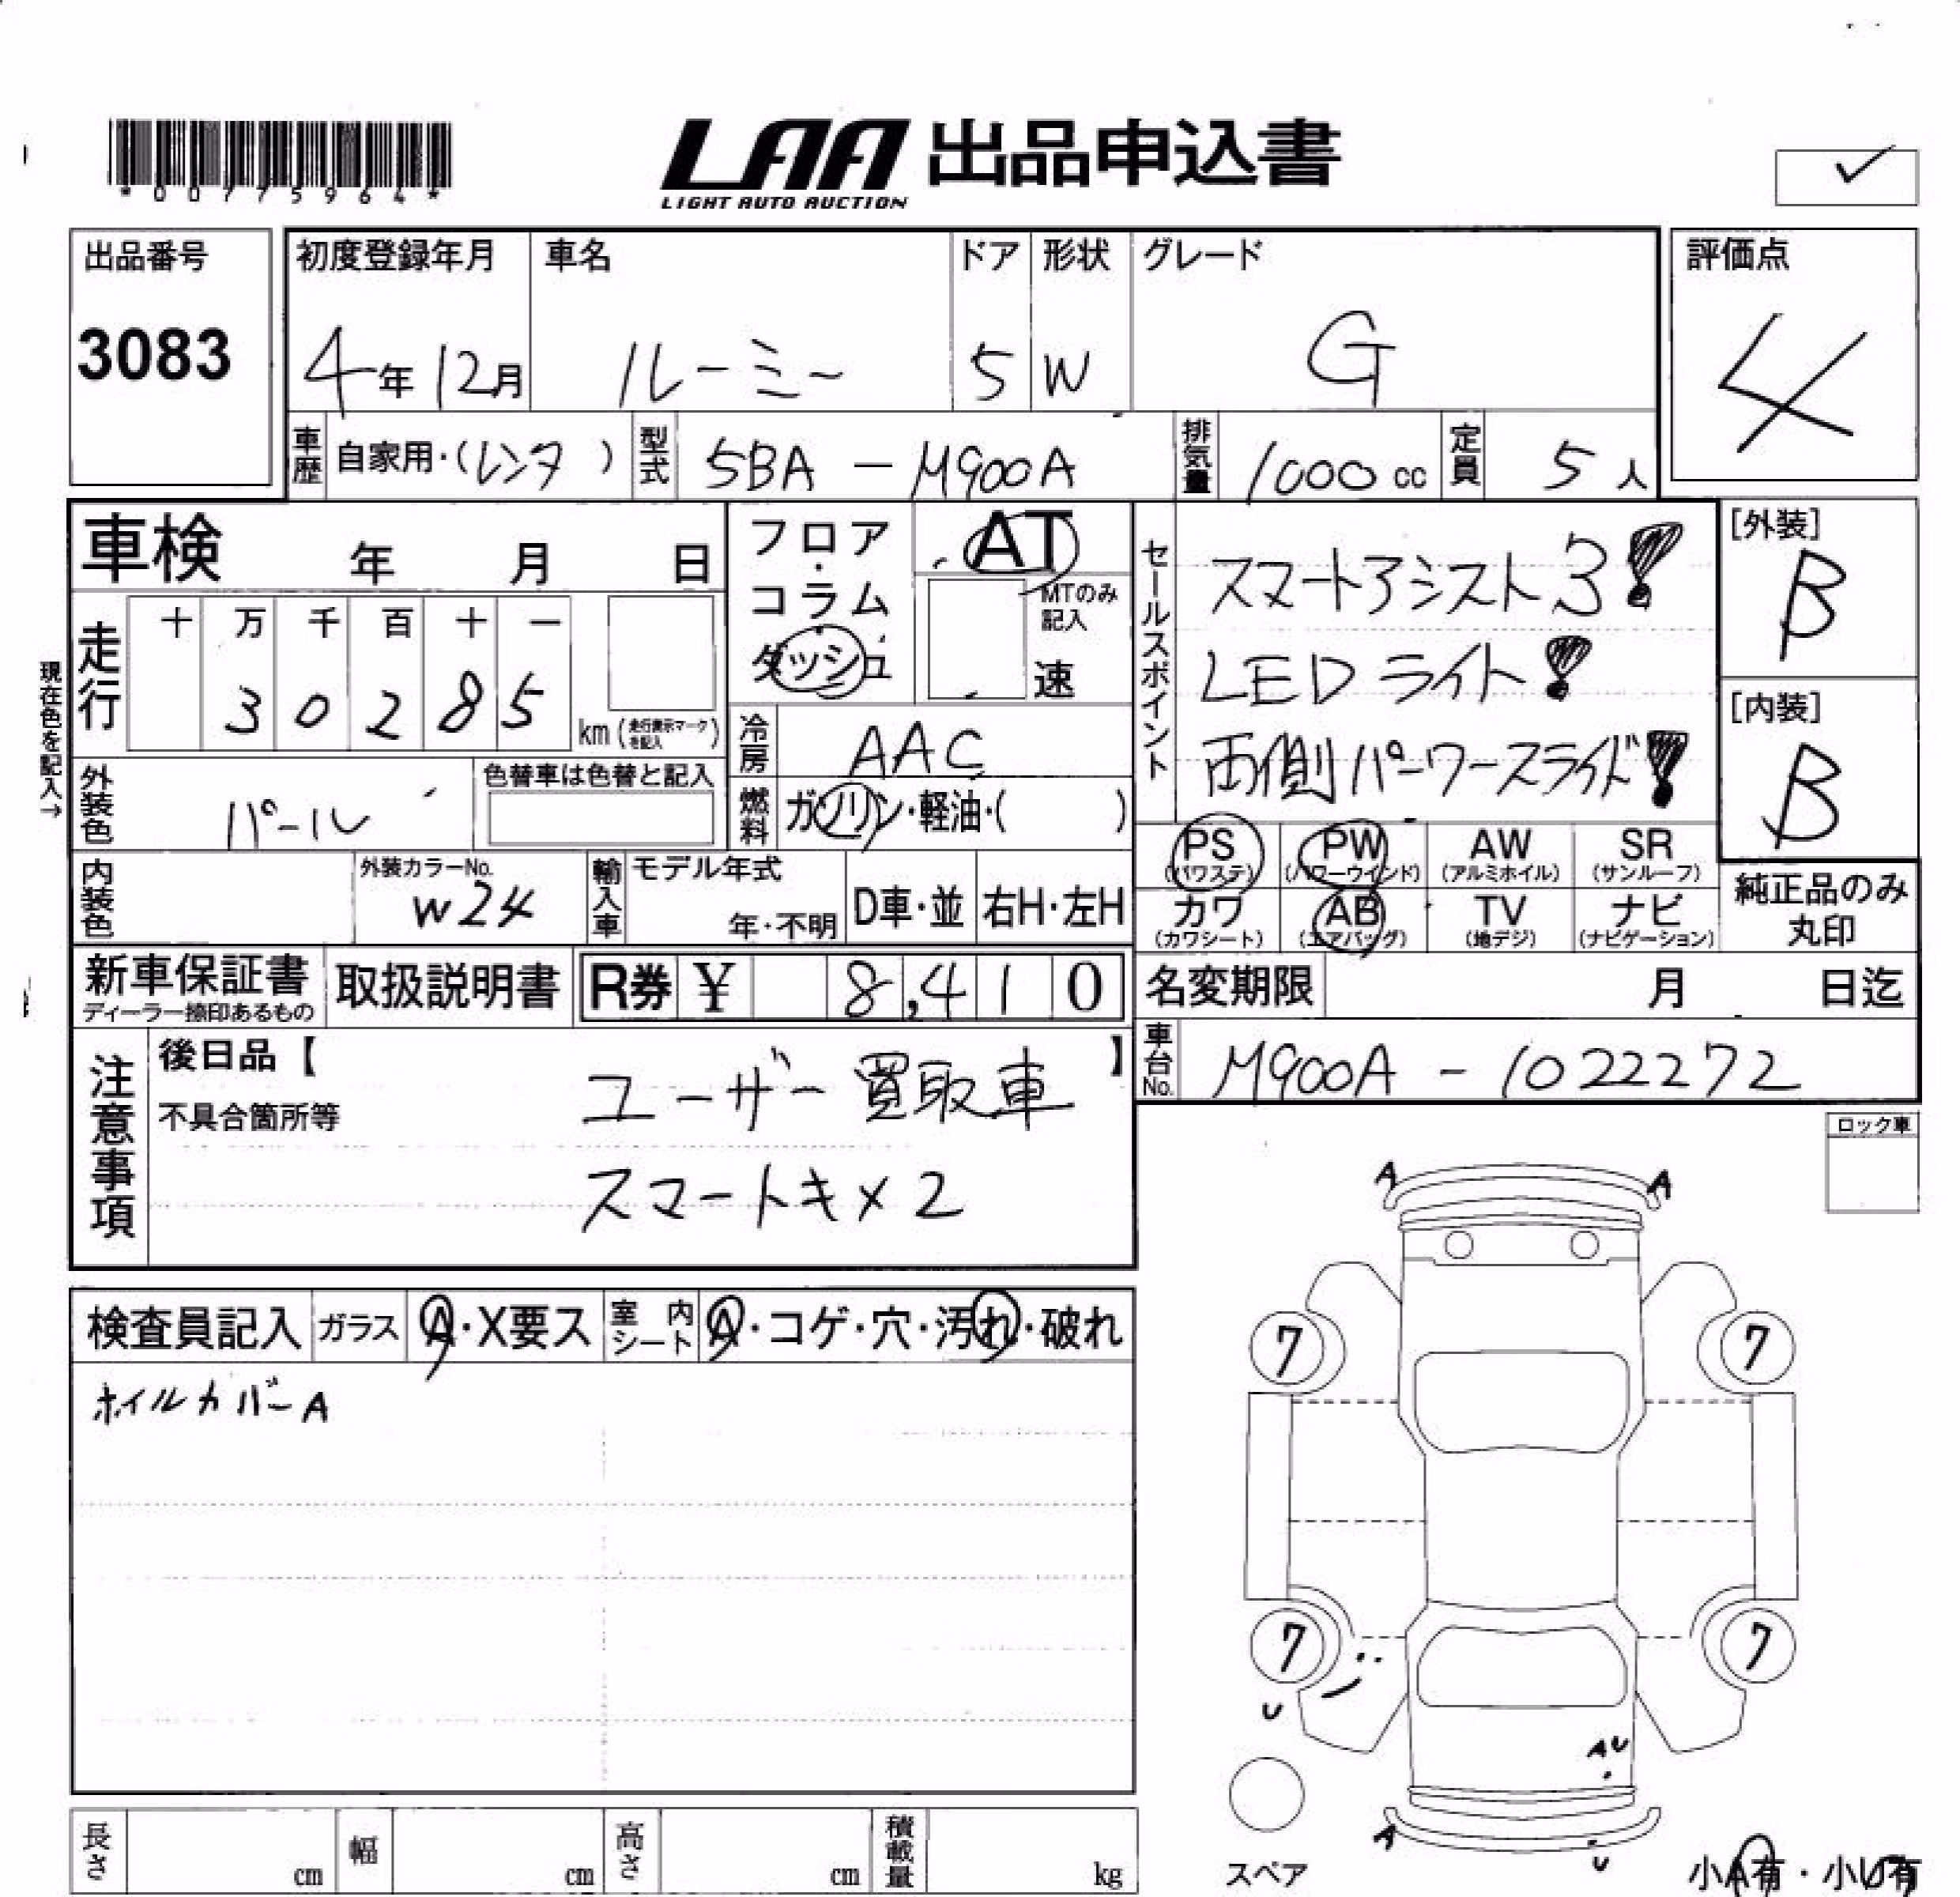 *00775964*
LAA 出品申込書
LIGHT AUTO AUCTION
✓
出品番号
3083
初度登録年月
4年12月
車名
ルーミー
ドア
5
形状
W
グレード
G
評価点
4
車歴
自家用・(レンタ )
型式
5BA - M900A
排気量
1000 cc
定員
5 人
車検 年 月 日
フロア・コラム
ダッシュ
AT
MTのみ記入
速
セールスポイント
スマートアシスト3!
LEDライト!
両側パーワースライド!
[外装]
B
[内装]
B
現在色を記入→
走行
十 万 千 百 十 一
3 0 2 8 5
km (走行表示マークを記入)
冷房
AAC
燃料
ガソリン・軽油・( )
外装色
パール
色替車は色替と記入
内装色
外装カラーNo.
W24
輸入車
モデル年式
年・不明
D車・並
右H・左H
PS (パワステ)
PW (パワーウインド)
AW (アルミホイル)
SR (サンルーフ)
カワ (カワシート)
AB (エアバッグ)
TV (地デジ)
ナビ (ナビゲーション)
純正品のみ
丸印
新車保証書
ディーラー捺印あるもの
取扱説明書
R券 ¥ 8,410
名変期限 月 日迄
車台No.
M900A - 1022272
注意事項
後日品【 】
不具合箇所等
ユーザー買取車
スマートキ×2
ロック車
検査員記入
ガラス
A・X要ス
室内シート
A・コゲ・穴・汚れ・破れ
ホイルカバーA
A A
7 7
7 7
U
AU
A
U
スペア
小A有・小U有
長さ cm
幅 cm
高さ cm
積載量 kg